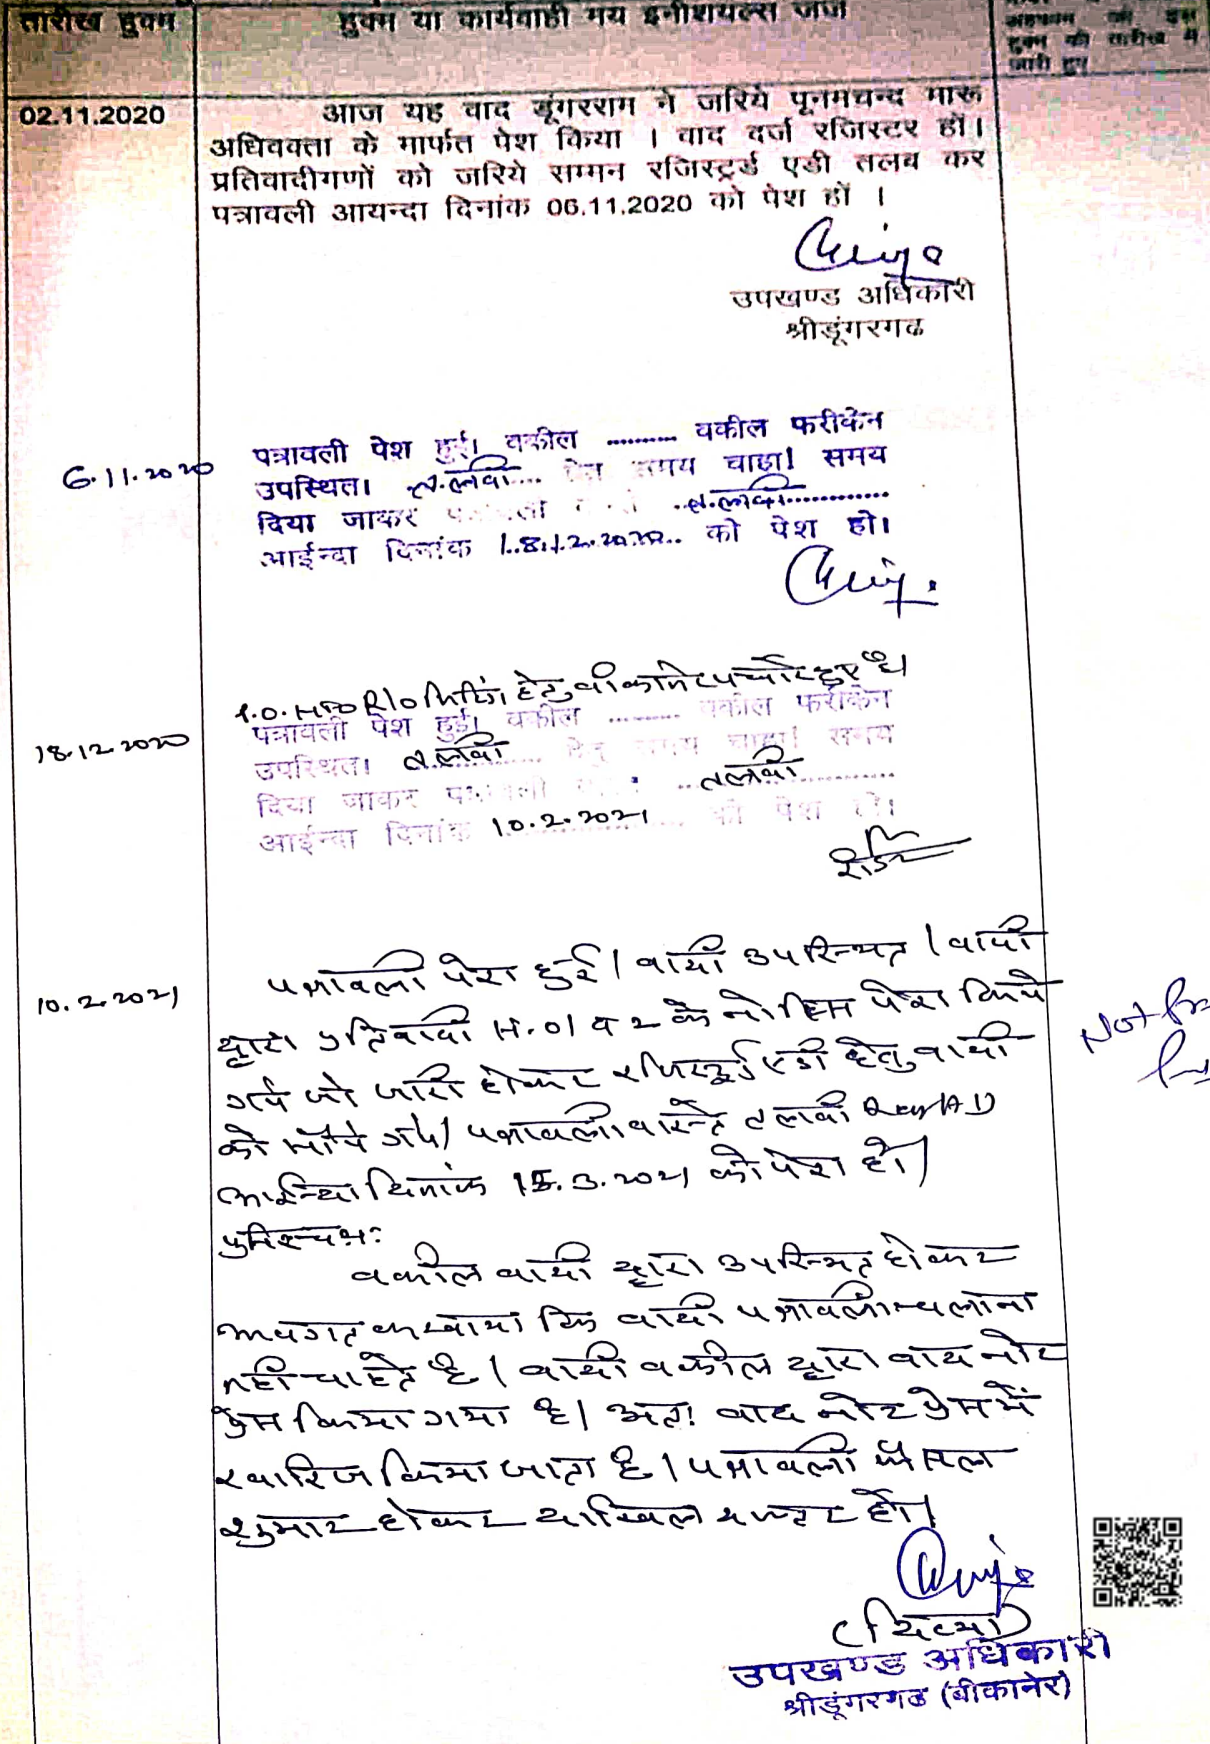 तारीख हुक्म
हुक्म या कार्यवाही मय इनीशयल्स जज
हुक्म की तारीख में
जारी हुए
02.11.2020
आज यह वाद डूंगरराम ने जरिये पूनमचन्द मारू
अधिवक्ता के मार्फत पेश किया । वाद दर्ज रजिस्टर हों।
प्रतिवादीगणों को जरिये सम्मन रजिस्ट्रर्ड एडी तलब कर
पत्रावली आयन्दा दिनांक 06.11.2020 को पेश हों ।
उपखण्ड अधिकारी
श्रीडूंगरगढ
6.11.2020
पत्रावली पेश हुई। वकील .......... वकील फरीकेन
उपस्थित। त.लवी... समय चाहा। समय
दिया जाकर त.लवी............
आईन्दा दिनांक 18.12.2020.. को पेश हो।
P.O. हेतु बीकानेर हुए है।
18.12.2020
पत्रावली पेश हुई। वकील .......... वकील फरीकेन
उपस्थित। त.लवी हेतु समय चाहा। समय
दिया जाकर तलवी
आईन्दा दिनांक 10.2.2021 को पेश हो।
10.2.2021
पत्रावली पेश हुई। वादी उपस्थित। वादी
द्वारा प्रतिवादी स.01 व 2 के नोटिस पेश किये
गये जो जारी होकर रजिस्टर्ड एडी हेतु वादी
को सौंपे गये। पत्रावली वास्ते तलवी Reg/AD
आईन्दा दिनांक 15.3.2021 को पेश हो।
Not Pre
पुनिश्चयः
वकील वादी द्वारा उपस्थित होकर
अवगत करवाया कि वादी पत्रावली चलाना
नही चाहते है। वादी वकील द्वारा वाद नोट
प्रेस किया गया है। अतः वाद नोट प्रेस में
खारिज किया जाता है। पत्रावली फैसल
शुमार होकर दाखिल दफ्तर हो।
(दिव्या)
उपखण्ड अधिकारी
श्रीडूंगरगढ (बीकानेर)